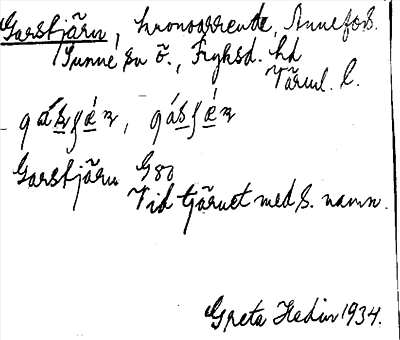 Garstjärn, kronoarrende, Annefors.
Sunne sn ö., Fryksd. hd
Värml. l.
Garstjärn G80
Vid tjärnet med s. namn.
Greta Hedin 1934.